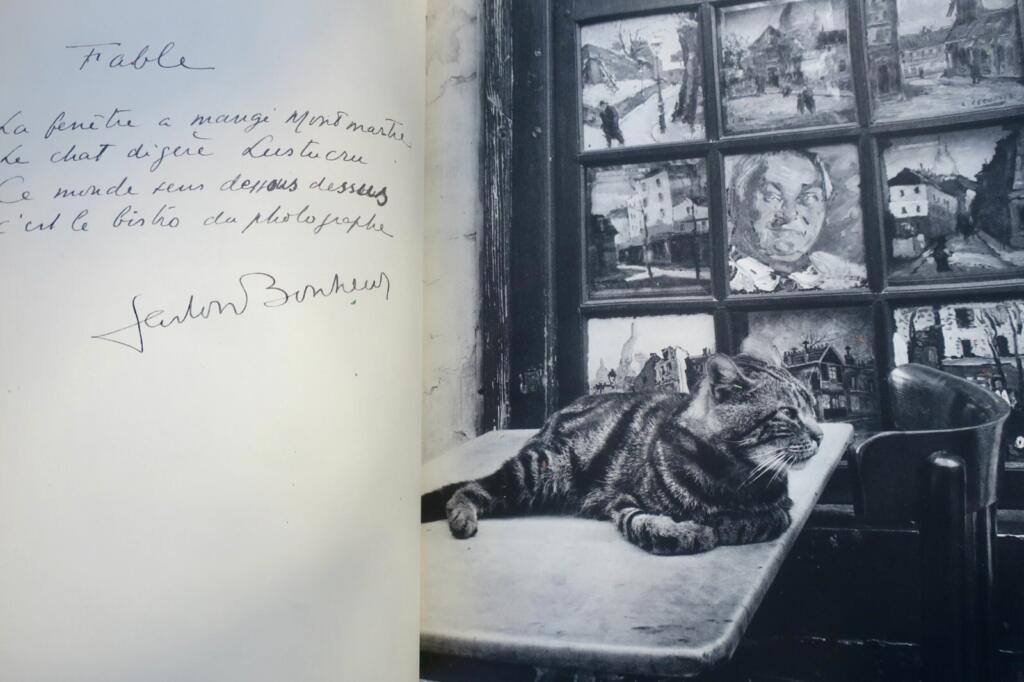 Fable
La fenêtre a mangé Montmartre
Le chat digère Lustucru
Ce monde sens dessous dessus
C'est le bistro du photographe
Gaston Bonheur